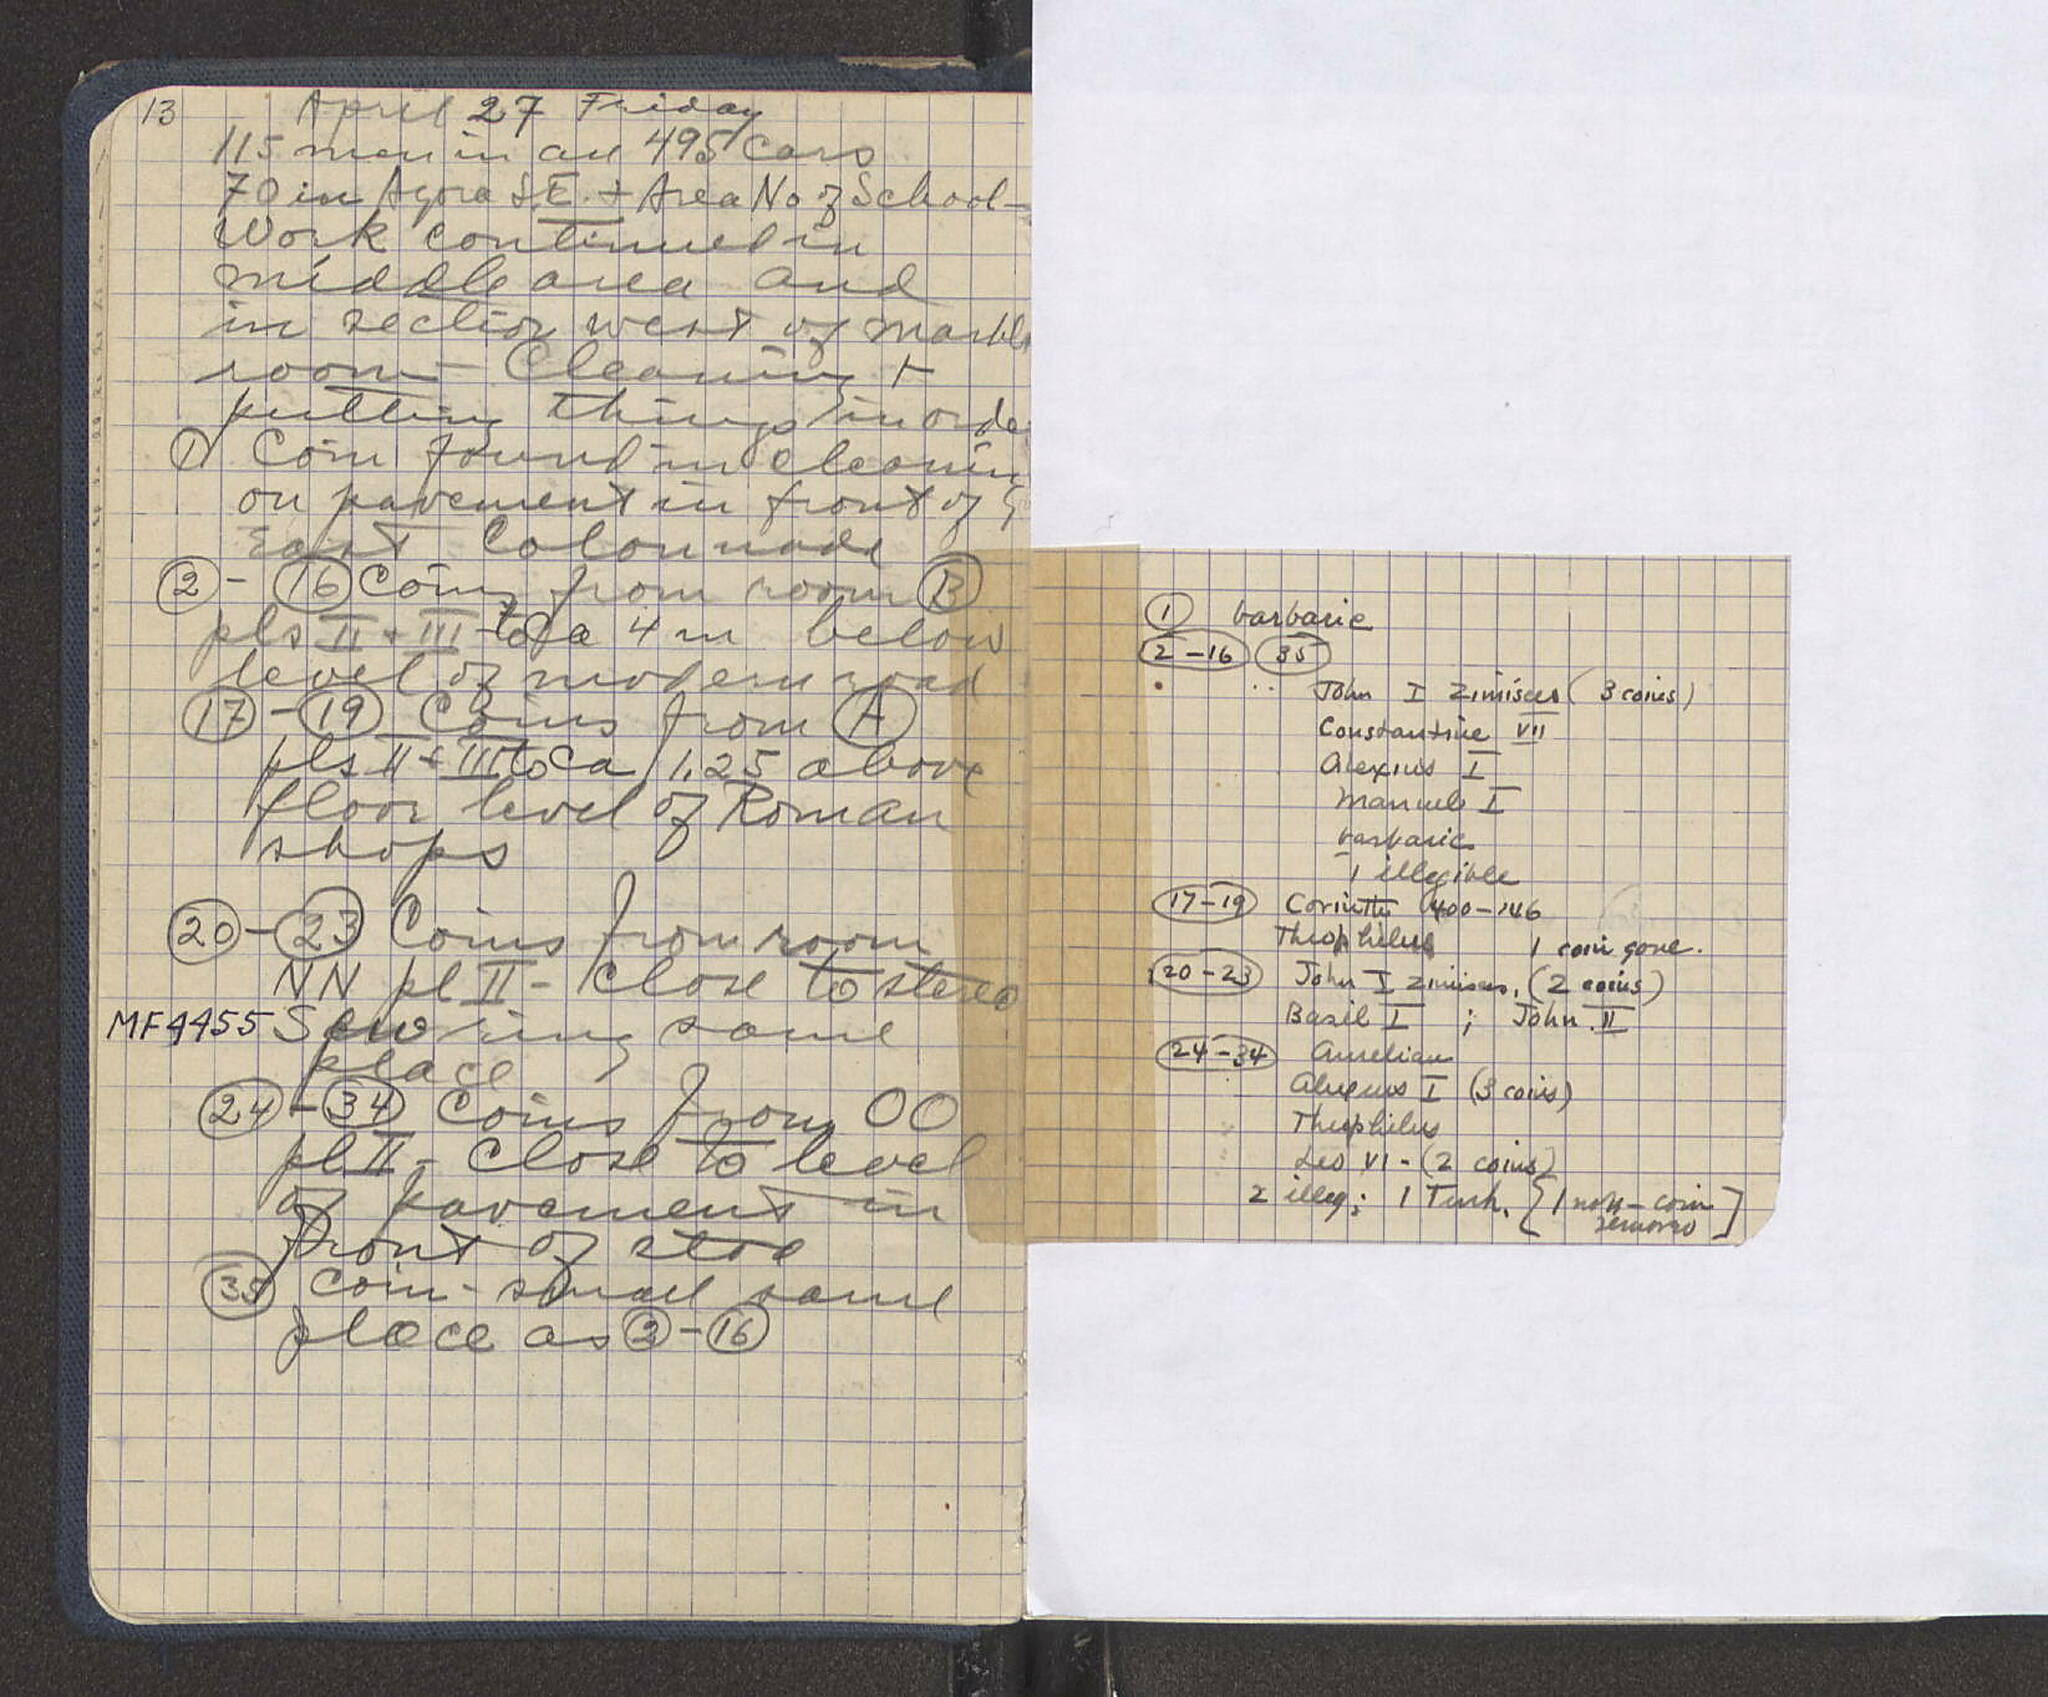 13
April 27 Friday
115 men in all 495 cars
70 in Agora S.E. + Area No of School -
Work continued in
middle area and
in section west of marble
room - Cleaning +
putting things in orde
① Coin found in cleaning
on pavement in front of
East Colonnade
② - ⑯ Coins from room Ⓑ
pls II + III to ca 4 m below
level of modern road
⑰ - ⑲ Coins from Ⓐ
pls II + III to ca 1.25 above
floor level of Roman
shops
⑳ - ㉓ Coins from room
NN pl II - Close to stereo
MF 4455 ring same
place
㉔ - ㉞ Coins from OO
pl II - Close to level
of pavement in
front of stoa
㉟ Coin - small same
place as ② - ⑯
① barbaric
2-16 35
John I Zimisces (3 coins)
Constantine VII
Alexius I
Manuel I
barbaric
1 illegible
17-19 Corinth 400-146
Theophilus 1 coin gone.
20-23 John I Zimisces. (2 coins)
Basil I ; John II
24-34 Aurelian
Alexius I (3 coins)
Theophilus
Leo VI - (2 coins)
2 illeg; 1 Turk. [1 non-coin
]